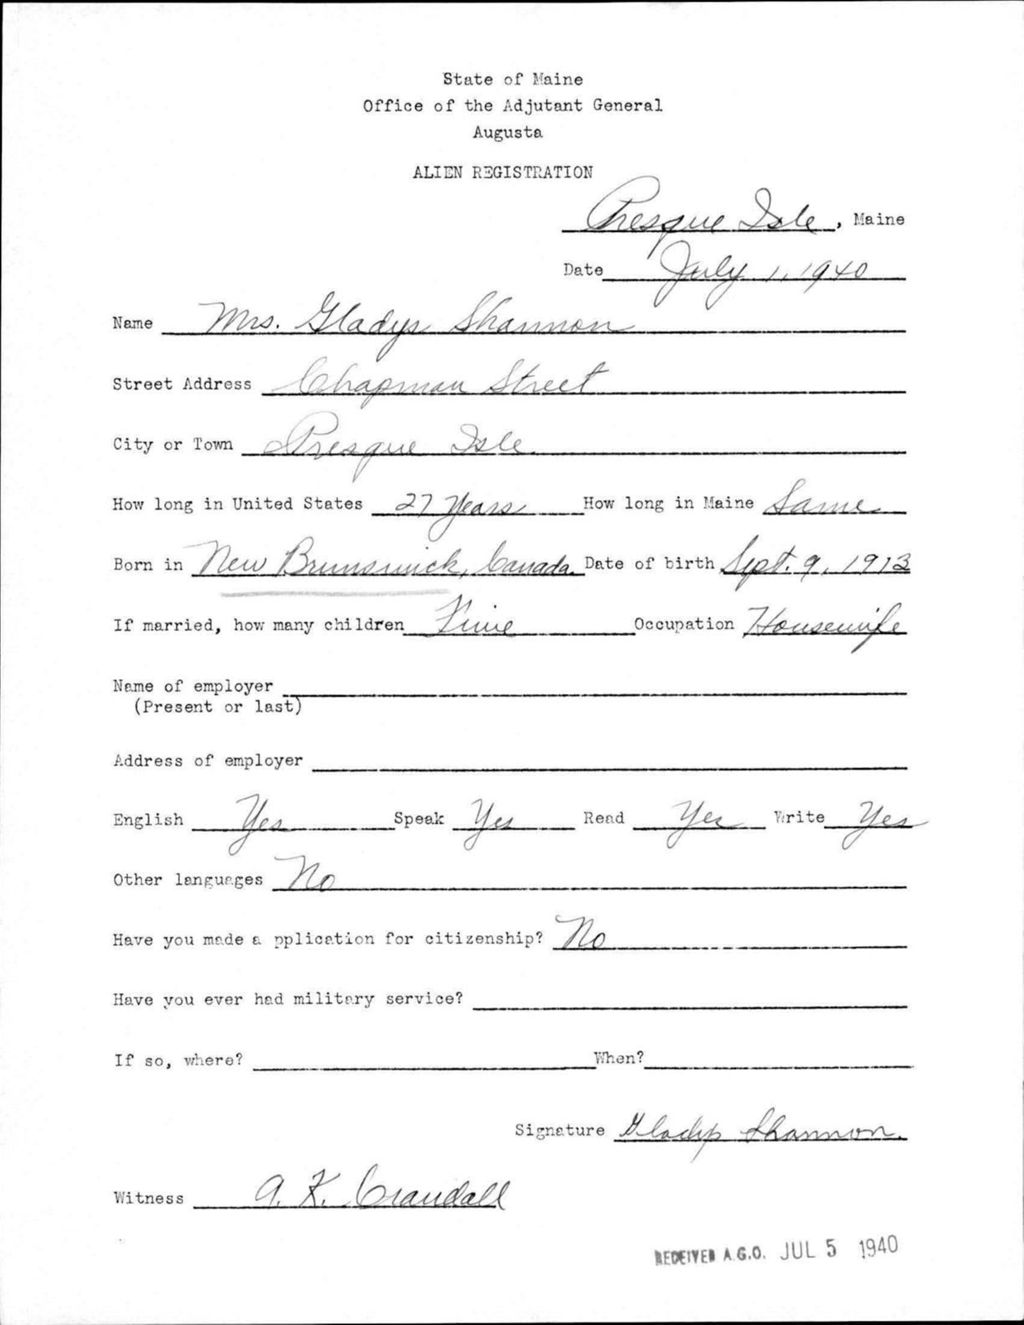 State of Maine
Office of the Adjutant General
Augusta
ALIEN REGISTRATION
Presque Isle, Maine
Date July 1, 1940
Name Mrs. Gladys Shannon
Street Address Chapman Street
City or Town Presque Isle.
How long in United States 27 Years How long in Maine Same
Born in New Brunswick, Canada. Date of birth Sept. 9, 1913
If married, how many children Five Occupation Housewife
Name of employer
(Present or last)
Address of employer
English Yes Speak Yes Read Yes Write Yes
Other languages No
Have you made a pplication for citizenship? No
Have you ever had military service?
If so, where? When?
Signature Gladys Shannon.
Witness A. K. Crandall
RECEIVED A.G.O. JUL 5 1940